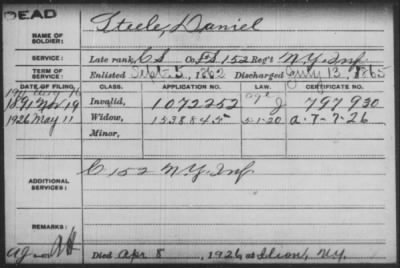 DEAD
Steele, Daniel
NAME OF SOLDIER:
SERVICE: Late rank, Co. 152 Reg't N.Y. Inf
TERM OF SERVICE: Enlisted Sept. 5, 1862 Discharged July 13, 1865
DATE OF FILING. CLASS. APPLICATION NO. LAW. CERTIFICATE NO.
1891 Nov 19 Invalid, 1072252 J 797930
1926 May 11 Widow, 1538845 5-1-20 a-7-7-26
Minor,
C 152 N.Y. Inf
ADDITIONAL SERVICES:
REMARKS:
Died Apr 8, 1926 at Ilion, N.Y.